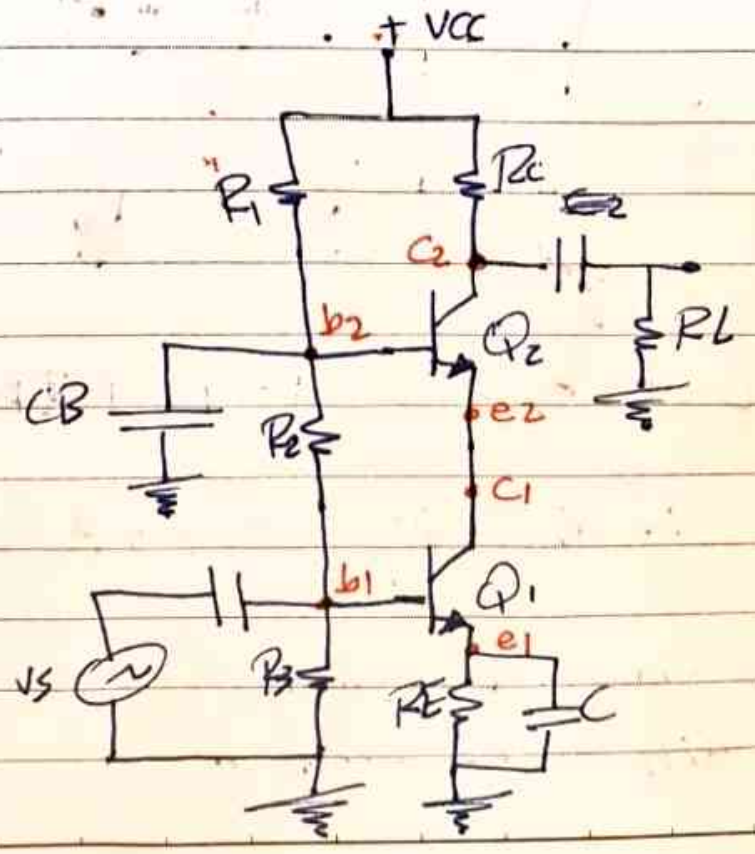 + VCC
R1
RC
C2
b2
Q2
RL
CB
R2
e2
C1
b1
Q1
e1
VS
R3
RE
C